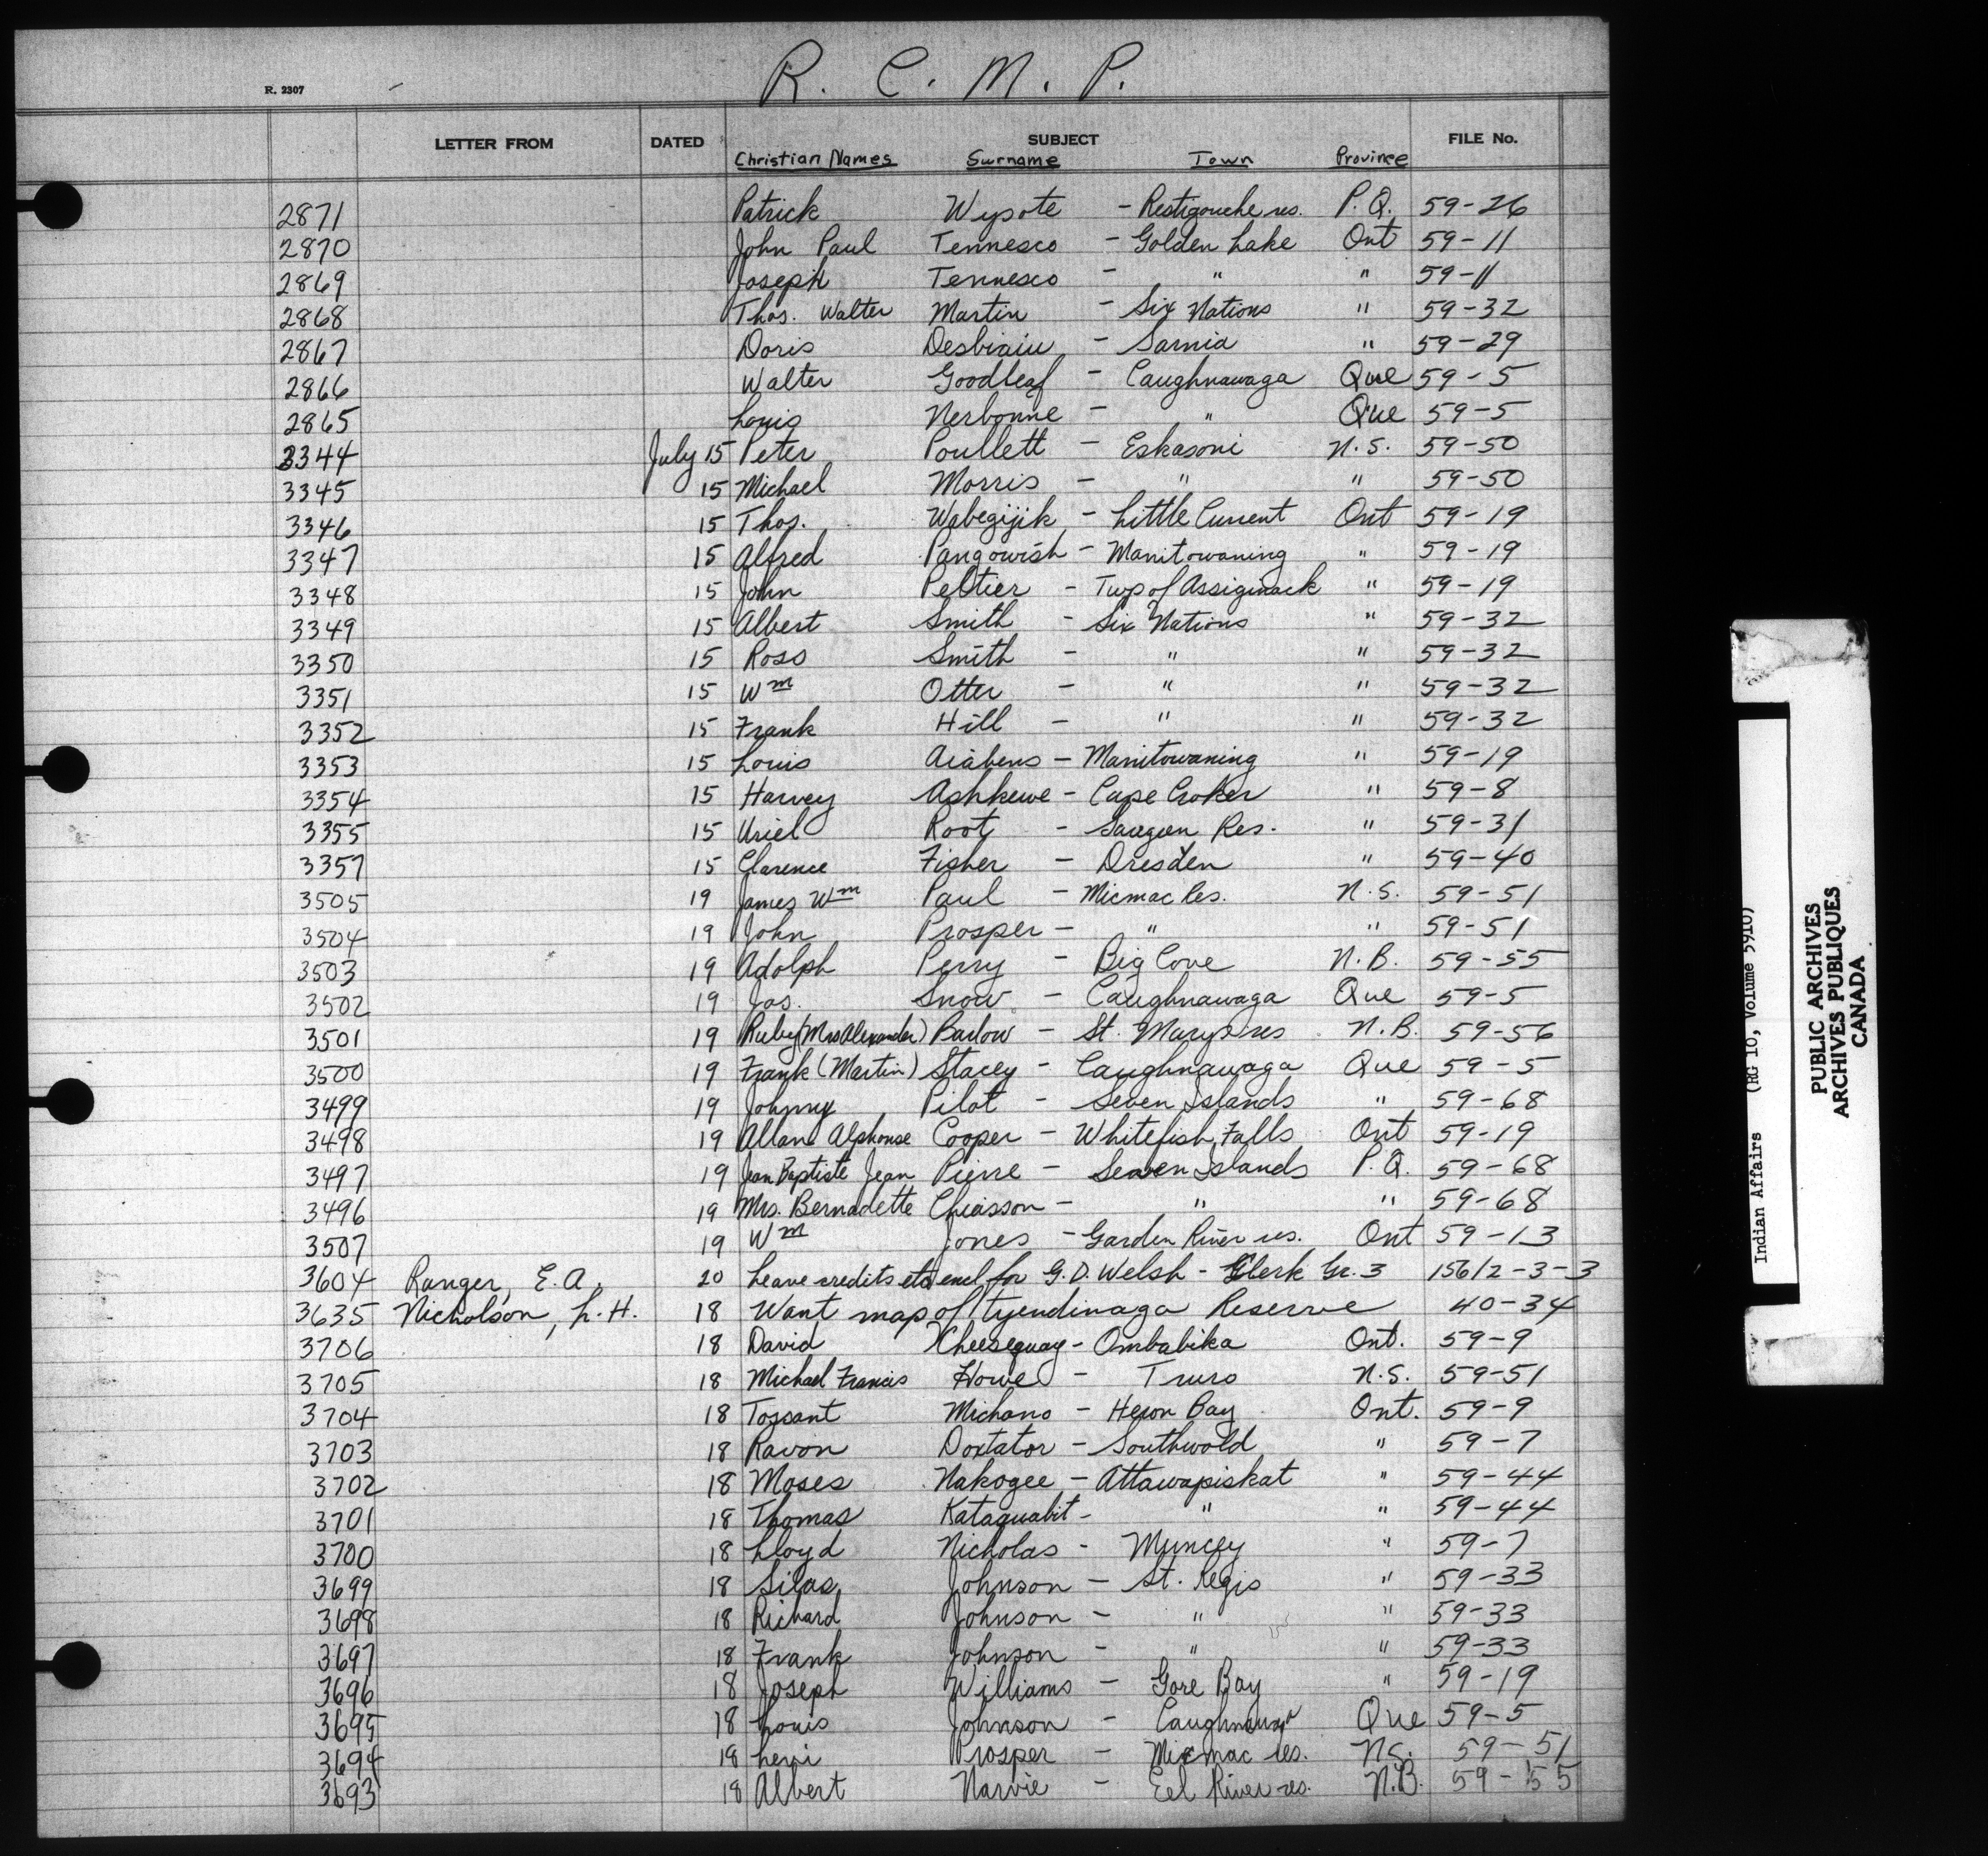 R. C. M. P.
R. 2307
LETTER FROM DATED SUBJECT FILE No.
Christian Names Surname Town Province
2871 Patrick Wysote - Restigouche res. P.Q. 59-26
2870 John Paul Tennesco - Golden Lake Ont 59-11
2869 Joseph Tennesco - " " 59-11
2868 Thos. Walter Martin - Six Nations " 59-32
2867 Doris - Sarnia " 59-29
2866 Walter Goodleaf - Caughnawaga Que 59-5
2865 Louis Nerbonne - " Que 59-5
3344 July 15 Peter Poullett - Eskasoni N.S. 59-50
3345 15 Michael Morris - " " 59-50
3346 15 Thos. Wabegijik - Little Current Ont 59-19
3347 15 Alfred Pangowish - Manitowaning " 59-19
3348 15 John Peltier - Twp of Assiginack " 59-19
3349 15 Albert Smith - Six Nations " 59-32
3350 15 Ross Smith - " " 59-32
3351 15 Wm Otter - " " 59-32
3352 15 Frank Hill - " " 59-32
3353 15 Louis Aiabens - Manitowaning " 59-19
3354 15 Harvey Ashkewe - Cape Croker " 59-8
3355 15 Uriel Root - Saugeen Res. " 59-31
3357 15 Clarence Fisher - Dresden " 59-40
3505 19 James Wm Paul - Micmac Res. N.S. 59-51
3504 19 John Prosper - " " 59-51
3503 19 Adolph Perry - Big Cove N.B. 59-55
3502 19 Jos. Snow - Caughnawaga Que 59-5
3501 19 Ruby (Mrs Alexander) Barlow - St. Mary's res N.B. 59-56
3500 19 Frank (Martin) Stacey - Caughnawaga Que 59-5
3499 19 Johnny Pilot - Seven Islands " 59-68
3498 19 Allan Alphonse Cooper - Whitefish Falls Ont 59-19
3497 19 Jean Baptiste Jean Pierre - Seven Islands P.Q. 59-68
3496 19 Mrs. Bernadette Chiasson - " " 59-68
3507 19 Wm Jones - Garden River res. Ont 59-13
3604 Ranger, E. A. 20 Leave credits etc encl for G. D. Welsh - Clerk Gr. 3 156/2-3-3
3635 Nicholson, L. H. 18 Want map of Tyendinaga Reserve 40-34
3706 18 David Cheesequay - Ombabika Ont. 59-9
3705 18 Michael Francis Howe - Truro N.S. 59-51
3704 18 Tossant Michano - Heron Bay Ont. 59-9
3703 18 Ravon Doxtator - Southwold " 59-7
3702 18 Moses Nakogee - Attawapiskat " 59-44
3701 18 Thomas Kataquabit - " " 59-44
3700 18 Lloyd Nicholas - Muncey " 59-7
3699 18 Silas Johnson - St. Regis " 59-33
3698 18 Richard Johnson - " " 59-33
3697 18 Frank Johnson - " " 59-33
3696 18 Joseph Williams - Gore Bay " 59-19
3695 18 Louis Johnson - Caughnawaga Que 59-5
3694 18 Levi Prosper - Micmac res. N.S. 59-51
3693 18 Albert Narvie - Eel River res. N.B. 59-55
Indian Affairs (RG 10, Volume 5910)
PUBLIC ARCHIVES
ARCHIVES PUBLIQUES
CANADA